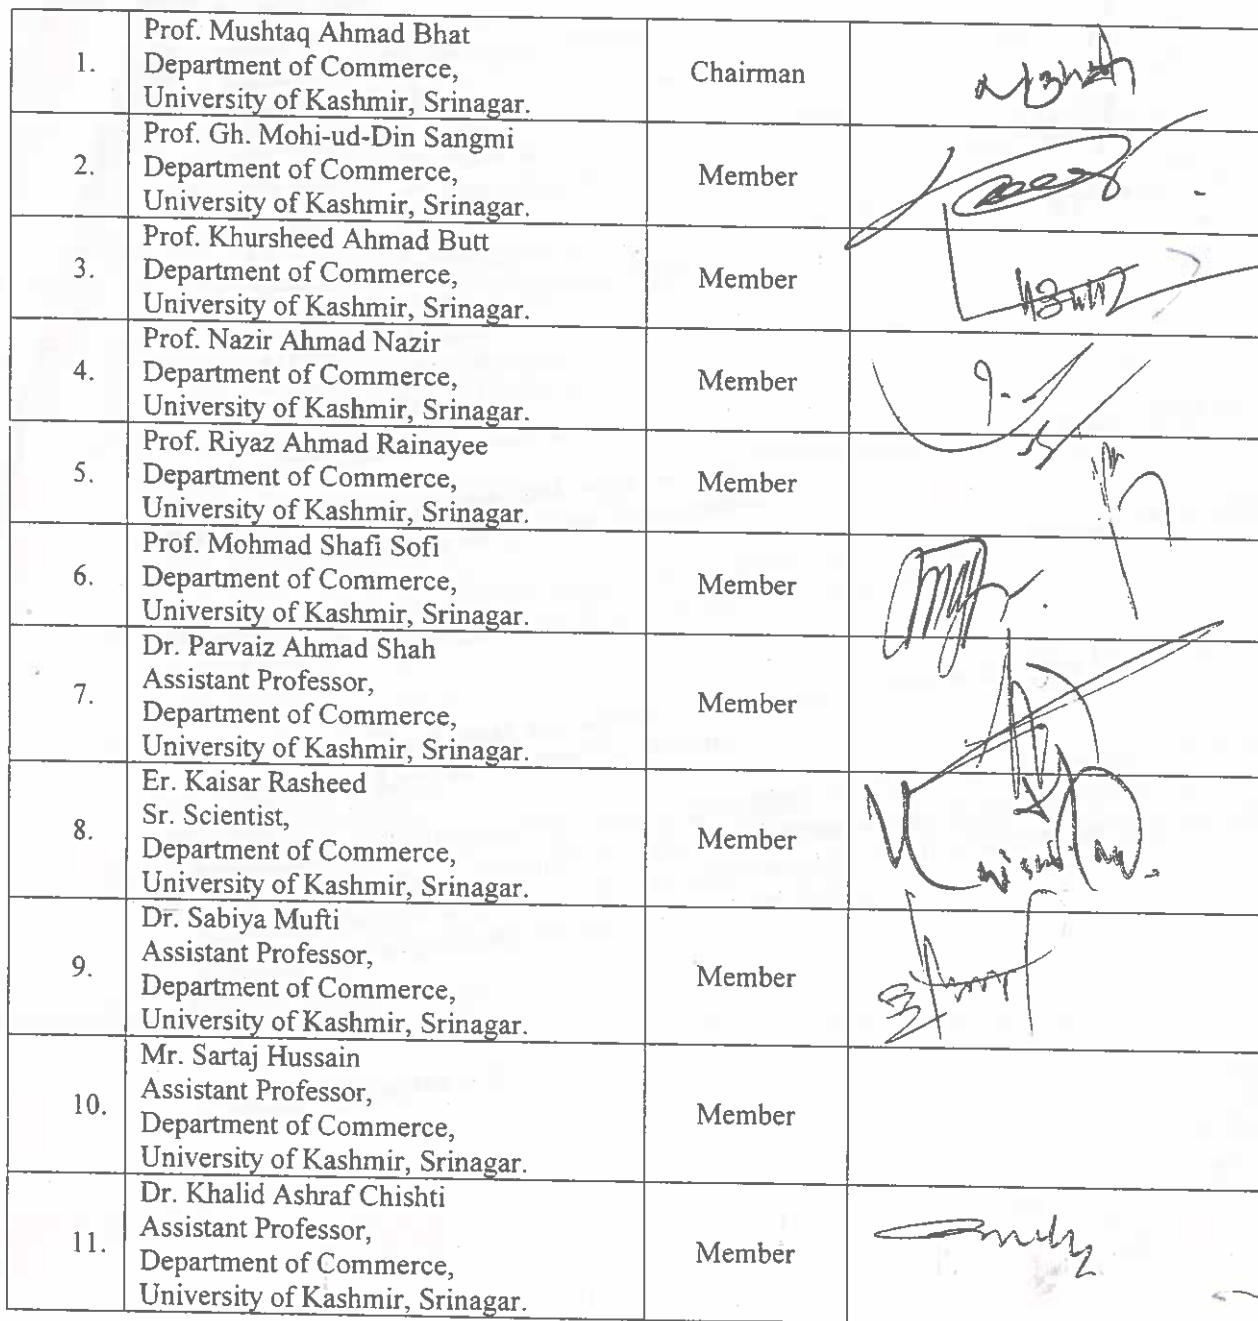 1.
Prof. Mushtaq Ahmad Bhat
Department of Commerce,
University of Kashmir, Srinagar.
Chairman
2.
Prof. Gh. Mohi-ud-Din Sangmi
Department of Commerce,
University of Kashmir, Srinagar.
Member
3.
Prof. Khursheed Ahmad Butt
Department of Commerce,
University of Kashmir, Srinagar.
Member
4.
Prof. Nazir Ahmad Nazir
Department of Commerce,
University of Kashmir, Srinagar.
Member
5.
Prof. Riyaz Ahmad Rainayee
Department of Commerce,
University of Kashmir, Srinagar.
Member
6.
Prof. Mohmad Shafi Sofi
Department of Commerce,
University of Kashmir, Srinagar.
Member
7.
Dr. Parvaiz Ahmad Shah
Assistant Professor,
Department of Commerce,
University of Kashmir, Srinagar.
Member
8.
Er. Kaisar Rasheed
Sr. Scientist,
Department of Commerce,
University of Kashmir, Srinagar.
Member
9.
Dr. Sabiya Mufti
Assistant Professor,
Department of Commerce,
University of Kashmir, Srinagar.
Member
10.
Mr. Sartaj Hussain
Assistant Professor,
Department of Commerce,
University of Kashmir, Srinagar.
Member
11.
Dr. Khalid Ashraf Chishti
Assistant Professor,
Department of Commerce,
University of Kashmir, Srinagar.
Member